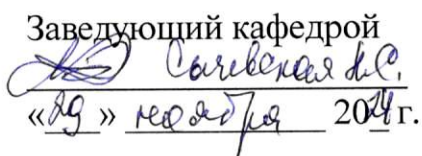 Заведующий кафедрой
Сычевская Н.С.
«29» ноября 2024 г.